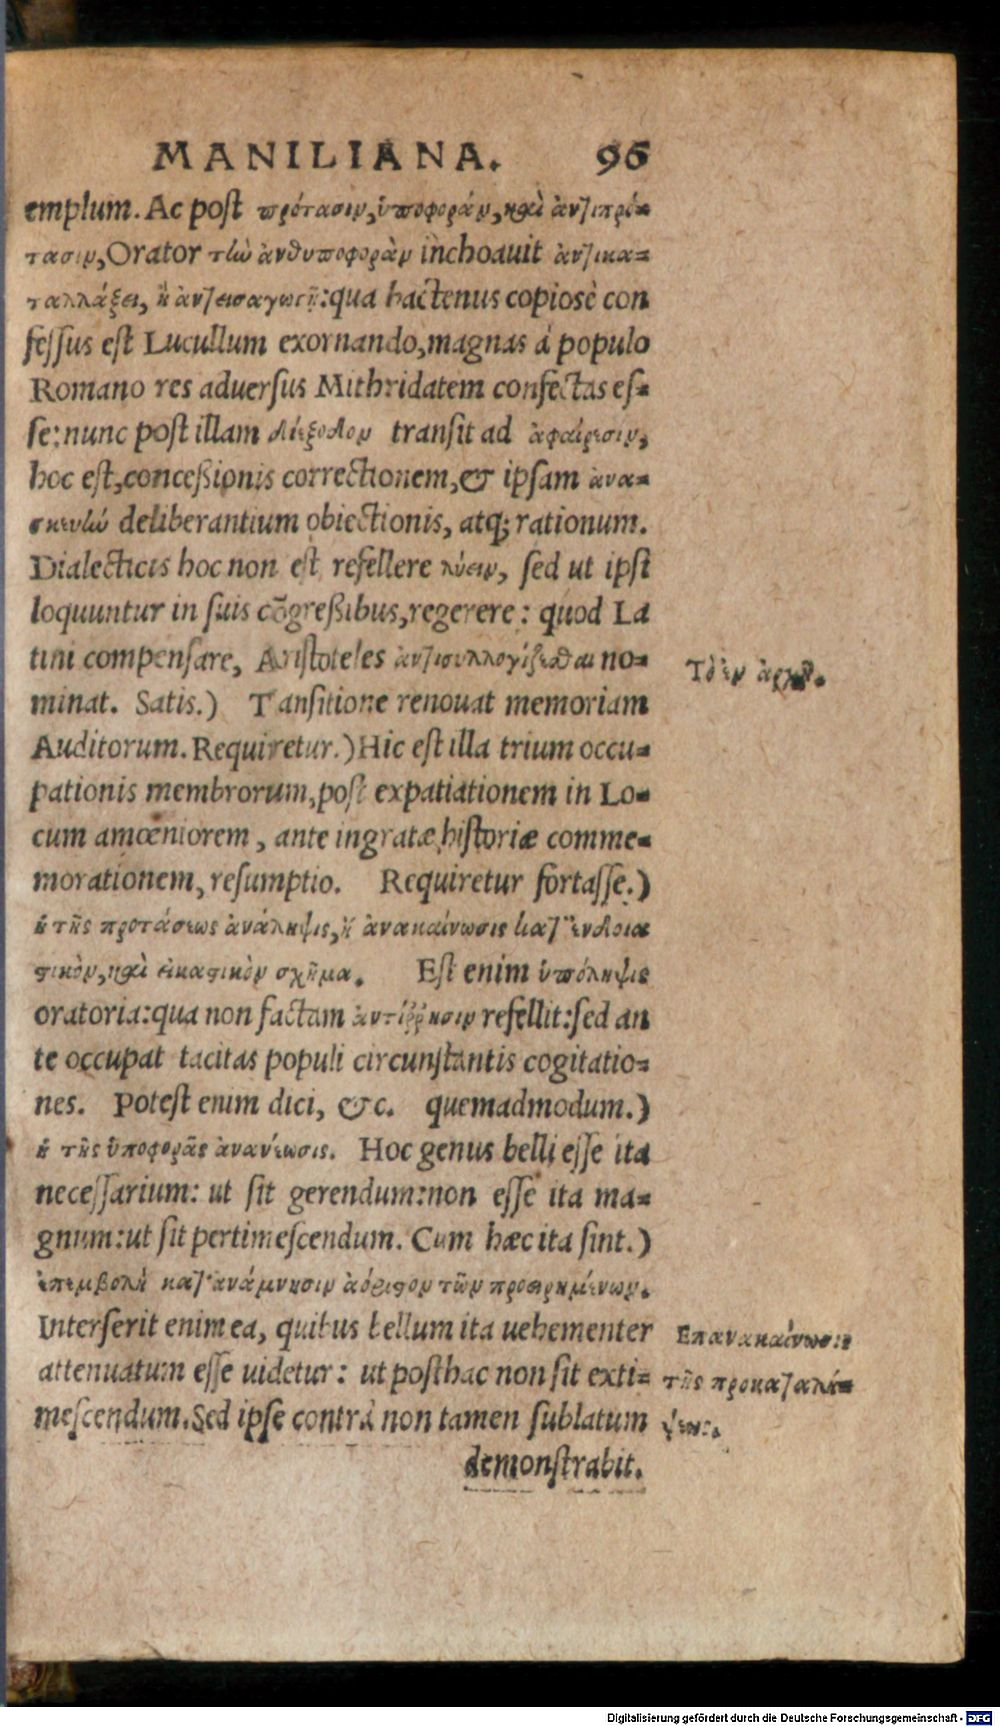 MANILIANA. 96
emplum. Ac post πρότασιν, ὑποφοράν, καὶ ἀντιπρό-
τασιν, Orator τὴν ἀνθυποφορὰν inchoauit ἀντικα-
ταλλάξει, ἢ ἀντεισαγωγῇ: qua hactenus copiosè con
fessus est Lucullum exornando, magnas à populo
Romano res aduersus Mithridatem confectas es-
se: nunc post illam διέξοδον transit ad ἀφαίρεσιν,
hoc est, concessionis correctionem, & ipsam ἀνα-
σκευὴν deliberantium obiectionis, atq; rationum.
Dialecticis hoc non est refellere λύειν, sed ut ipsi
loquuntur in suis cōgressibus, regerere: quod La
tini compensare, Aristoteles ἀντισυλλογίζεσθαι no-
minat. Satis.) Tansitione renouat memoriam
Auditorum. Requiretur.) Hic est illa trium occu-
pationis membrorum, post expatiationem in Lo-
cum amœniorem, ante ingratæ historiæ comme-
morationem, resumptio. Requiretur fortasse.)
ἡ τῆς προτάσεως ἀνάληψις, ἢ ἀνακαίνωσις
σχῆμα. Est enim ὑπόληψις
oratoria: qua non factam ἀντίῤῥησιν refellit: sed an
te occupat tacitas populi circunstantis cogitatio-
nes. Potest enim dici, &c. quemadmodum.)
ἡ τῆς ὑποφορᾶς ἀνανέωσις. Hoc genus belli esse ita
necessarium: ut sit gerendum: non esse ita ma-
gnum: ut sit pertimescendum. Cum hæc ita sint.)
ἐπεμβολὴ κατ' ἀνάμνησιν ἀόριστον τῶν προειρημένων.
Interserit enim ea, quibus bellum ita uehementer
attenuatum esse uidetur: ut posthac non sit exti-
mescendum. Sed ipse contrà non tamen sublatum
demonstrabit.
Επανακαίνωσις
τῆς προκαταλή-
ψεως.
Digitalisierung gefördert durch die Deutsche Forschungsgemeinschaft - DFG